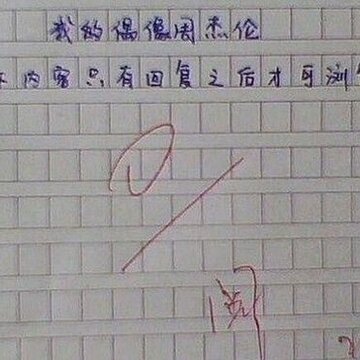 我的偶像周杰伦
内容只有回复之后才可浏
阅